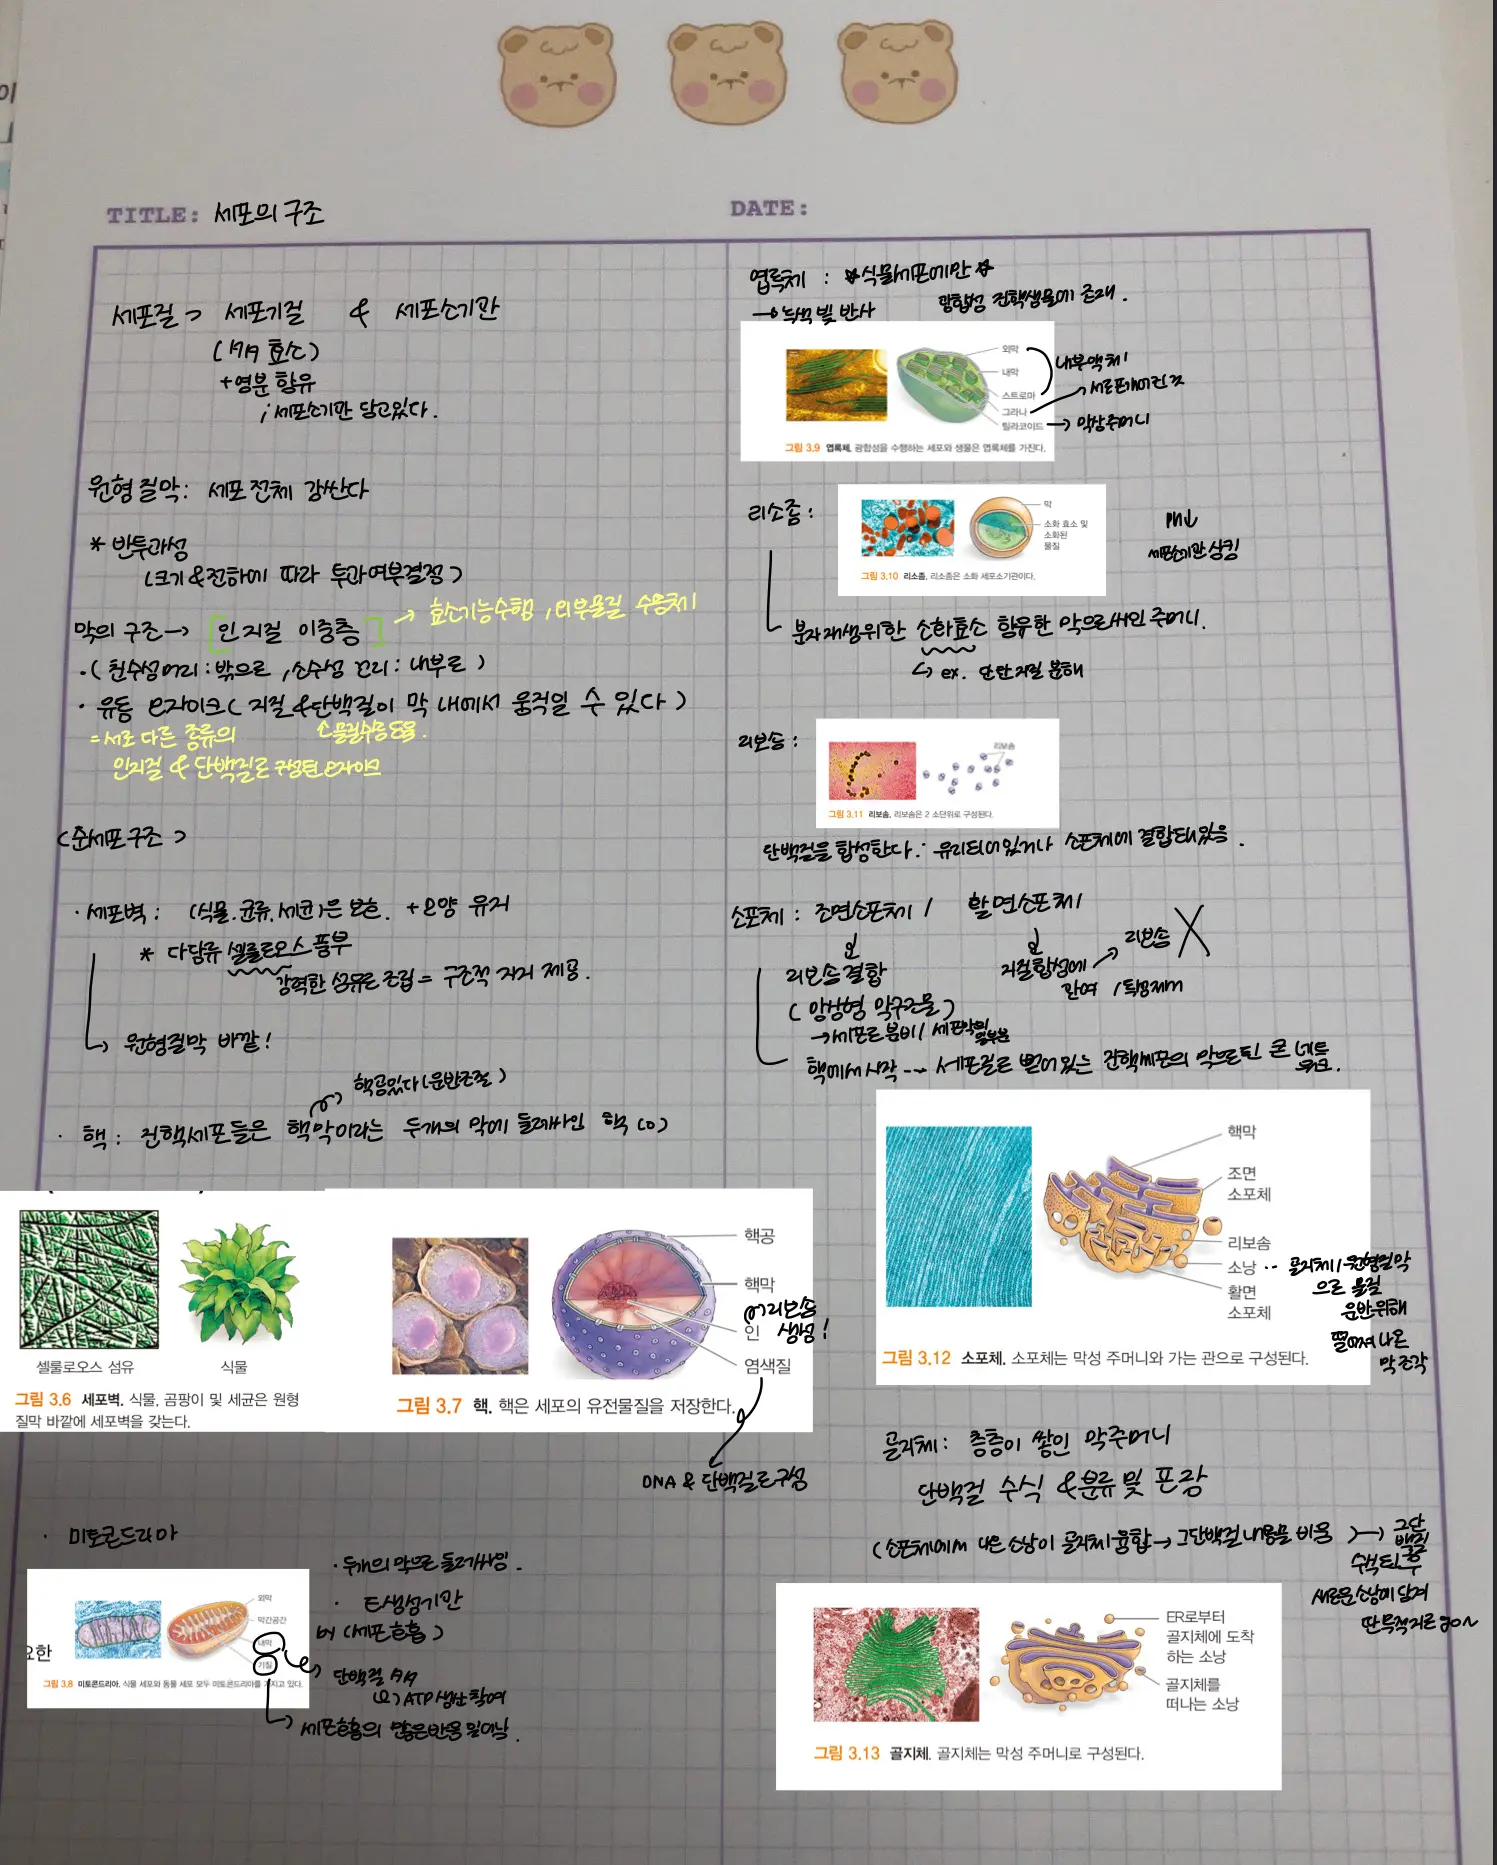 TITLE: 세포의 구조
DATE:
세포질 > 세포기질 & 세포소기관
+ 영분 함유
; 세포소기관 담고있다.
원형질막: 세포 전체 감싼다
* 반투과성
(크기 & 전하에 따라 투과여부결정)
막의 구조 → [인지질 이중층]
→ 효소기능수행, 외부물질 수용체
·(친수성머리:밖으로, 소수성 꼬리:내부로)
· 유동 모자이크( 지질 & 단백질이 막 내에서 움직일 수 있다)
= 서로 다른 종류의
인지질 & 단백질로 구성된 모자이크
(순세포구조)
· 세포벽: (식물.균류.세균)은 보호. + 모양 유지
* 다당류 셀룰로오스 풍부
강력한 섬유로 조립 = 구조적 지지 제공.
→ 원형질막 바깥!
핵공있다(운반조절)
· 핵: 진핵세포들은 핵막이라는 두개의 막에 둘레싸인 핵(o)
셀룰로오스 섬유
식물
그림 3.6 세포벽. 식물, 곰팡이 및 세균은 원형
질막 바깥에 세포벽을 갖는다.
핵공
핵막
인
리보솜
생성!
염색질
그림 3.7 핵. 핵은 세포의 유전물질을 저장한다.
DNA & 단백질로구성
· 미토콘드리아
· 두개의 막으로 둘레싸임.
· E생성기관
by (세포호흡)
외막
막간공간
내막
기질
요한
그림 3.8 미토콘드리아. 식물 세포와 동물 세포 모두 미토콘드리아를 가지고 있다.
→ ATP생산 참여
→ 세포호흡의 많은반응 일어남.
엽록체 : ☆식물세포에만☆
→ 녹색 빛 반사
광합성 진핵생물에 존재.
외막
내막
스트로마
그라나
틸라코이드 → 막상주머니
내부액체
그림 3.9 엽록체. 광합성을 수행하는 세포와 생물은 엽록체를 가진다.
리소좀 :
막
소화 효소 및
소화된
물질
그림 3.10 리소좀. 리소좀은 소화 세포소기관이다.
분자재생위한 소화효소 함유한 막으로싸인 주머니.
↳ ex. 단단지질 분해
리보솜 :
리보솜
그림 3.11 리보솜. 리보솜은 2 소단위로 구성된다.
단백질을 합성한다. : 유리되어있거나 소포체에 결합돼있음.
소포체 : 조면소포체 / 활면소포체
리보솜결합
지질합성에
관여
→ 리보솜 X
핵에서시작 … 세포질로 뻗어있는 진핵세포의 막으로된 큰 네트
워크.
핵막
조면
소포체
리보솜
소낭
활면
소포체
골지체/원형질막
으로 물질
운반위해
떨어져나온
막조각
그림 3.12 소포체. 소포체는 막성 주머니와 가는 관으로 구성된다.
골지체: 층층이 쌓인 막주머니
단백질 수식 & 분류 및 포장
(소포체에서 나온 소낭이 골지체융합 → 그단백질 내용물 비움)
새로운 소낭에 담겨
딴목적지로 go~
ER로부터
골지체에 도착
하는 소낭
골지체를
떠나는 소낭
그림 3.13 골지체. 골지체는 막성 주머니로 구성된다.